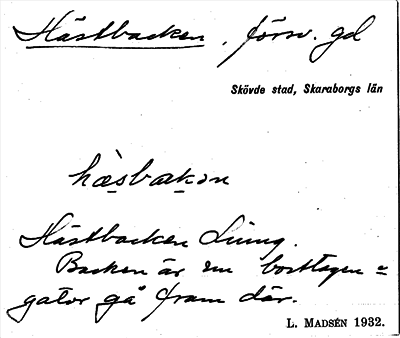 Hästbacken, försv. gd
Skövde stad, Skaraborgs län
hæ̀sbakən
Hästbacken Ljung.
Backen är nu borttagen =
gator gå fram där.
L. MADSÉN 1932.